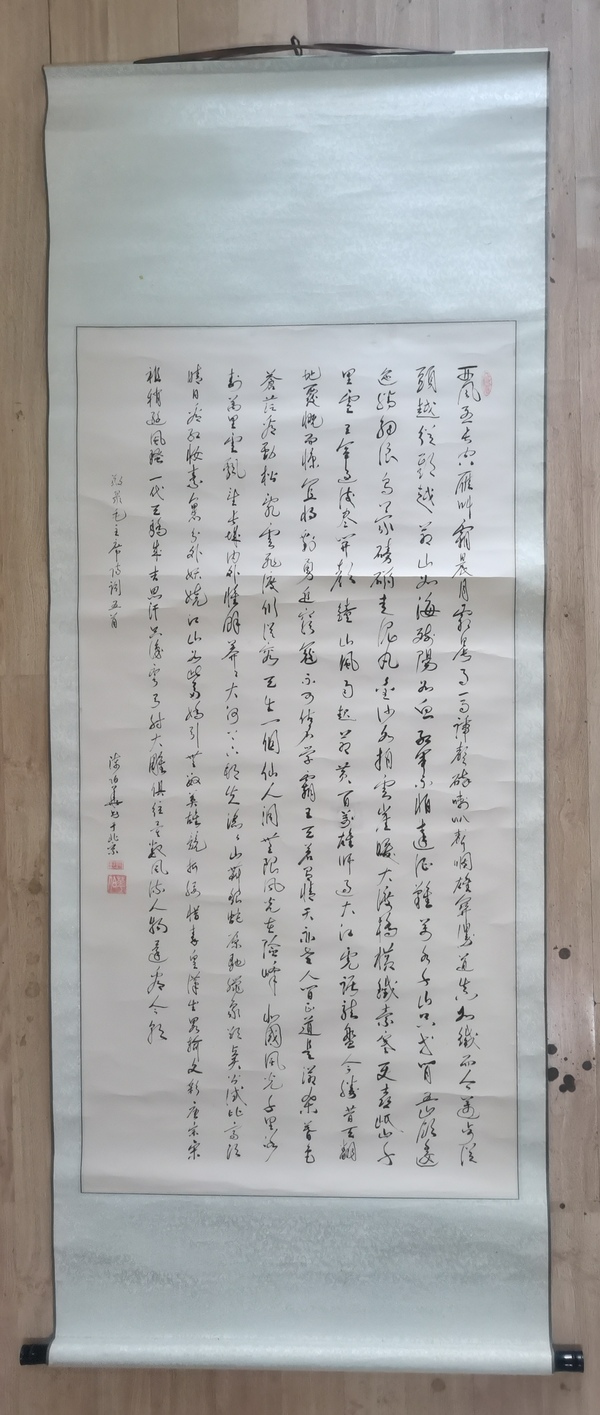 西风烈长空雁叫霜晨月霜晨月马蹄声碎喇叭声咽雄关漫道真如鐵而今迈步從
頭越從頭越苍山如海残陽如血红军不怕遠征難万水千山只等闲五岭逶
迤腾细浪乌蒙磅礴走泥丸金沙水拍雲崖暖大渡橋横鐵索寒更喜岷山千
里雪三军过後尽开颜鐘山风雨起苍黄百万雄师过大江虎踞龙盘今胜昔天翻
地覆慨而慷宜将剩勇追穷寇不可沽名学霸王天若有情天亦老人间正道是滄桑暮色
苍茫看劲松乱雲飛渡仍從容天生一個仙人洞無限风光在险峰北國风光千里冰
封万里雪飘望长城内外惟馀莽莽大河上下顿失滔滔山舞银蛇原驰蜡象欲与天公试比高须
晴日看红妆素裹分外妖娆江山如此多娇引無数英雄竞折腰惜秦皇漢武略输文彩唐宗宋
祖稍逊风骚一代天骄成吉思汗只識弯弓射大雕俱往矣数风流人物還看今朝
毛主席诗词五首
于北京